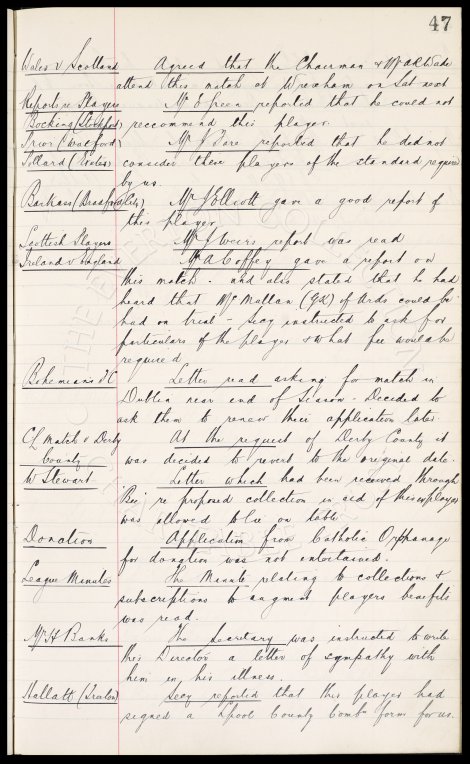 47
Wales v Scotland Agreed that the Chairman & Mr A R Wade
attend this match at Wrexham on Sat next
Reports re Players Mr E Green reported that he could not
Bocking (Stockport) reccommend this player.
Prior (Watford) Mr J Fare reported that he did not
Pollard (Exeter) consider these players of the standard required
by us.
Barkass (Bradford City) Mr J Elliott gave a good report of
this player
Scottish Players Mr J Weirs report was read
Ireland v England Mr A Coffey gave a report on
this match - and also stated that he had
heard that McMullan (Gd) of Ards could be
had on trial - Secy instructed to ask for
particulars of the player & what fee would be
required.
Bohemians FC Letter read asking for match in
Dublin near end of Season - Decided to
ask them to renew their application later.
CL Match v Derby At the request of Derby County it
County was decided to revert to the original date.
W Stewart Letter which had been received through
re proposed collection in aid of this explayer
was allowed to lie on table
Donation Application from Catholic Orphanage
for donation was not entertained.
League Minutes The Minute relating to collections &
subscriptions to augment players benefits
was read.
Mr H Banks The Secretary was instructed to write
this Director a letter of sympathy with
him in his illness.
Hallatt Secy reported that this player had
signed a Lpool County Combn form for us.